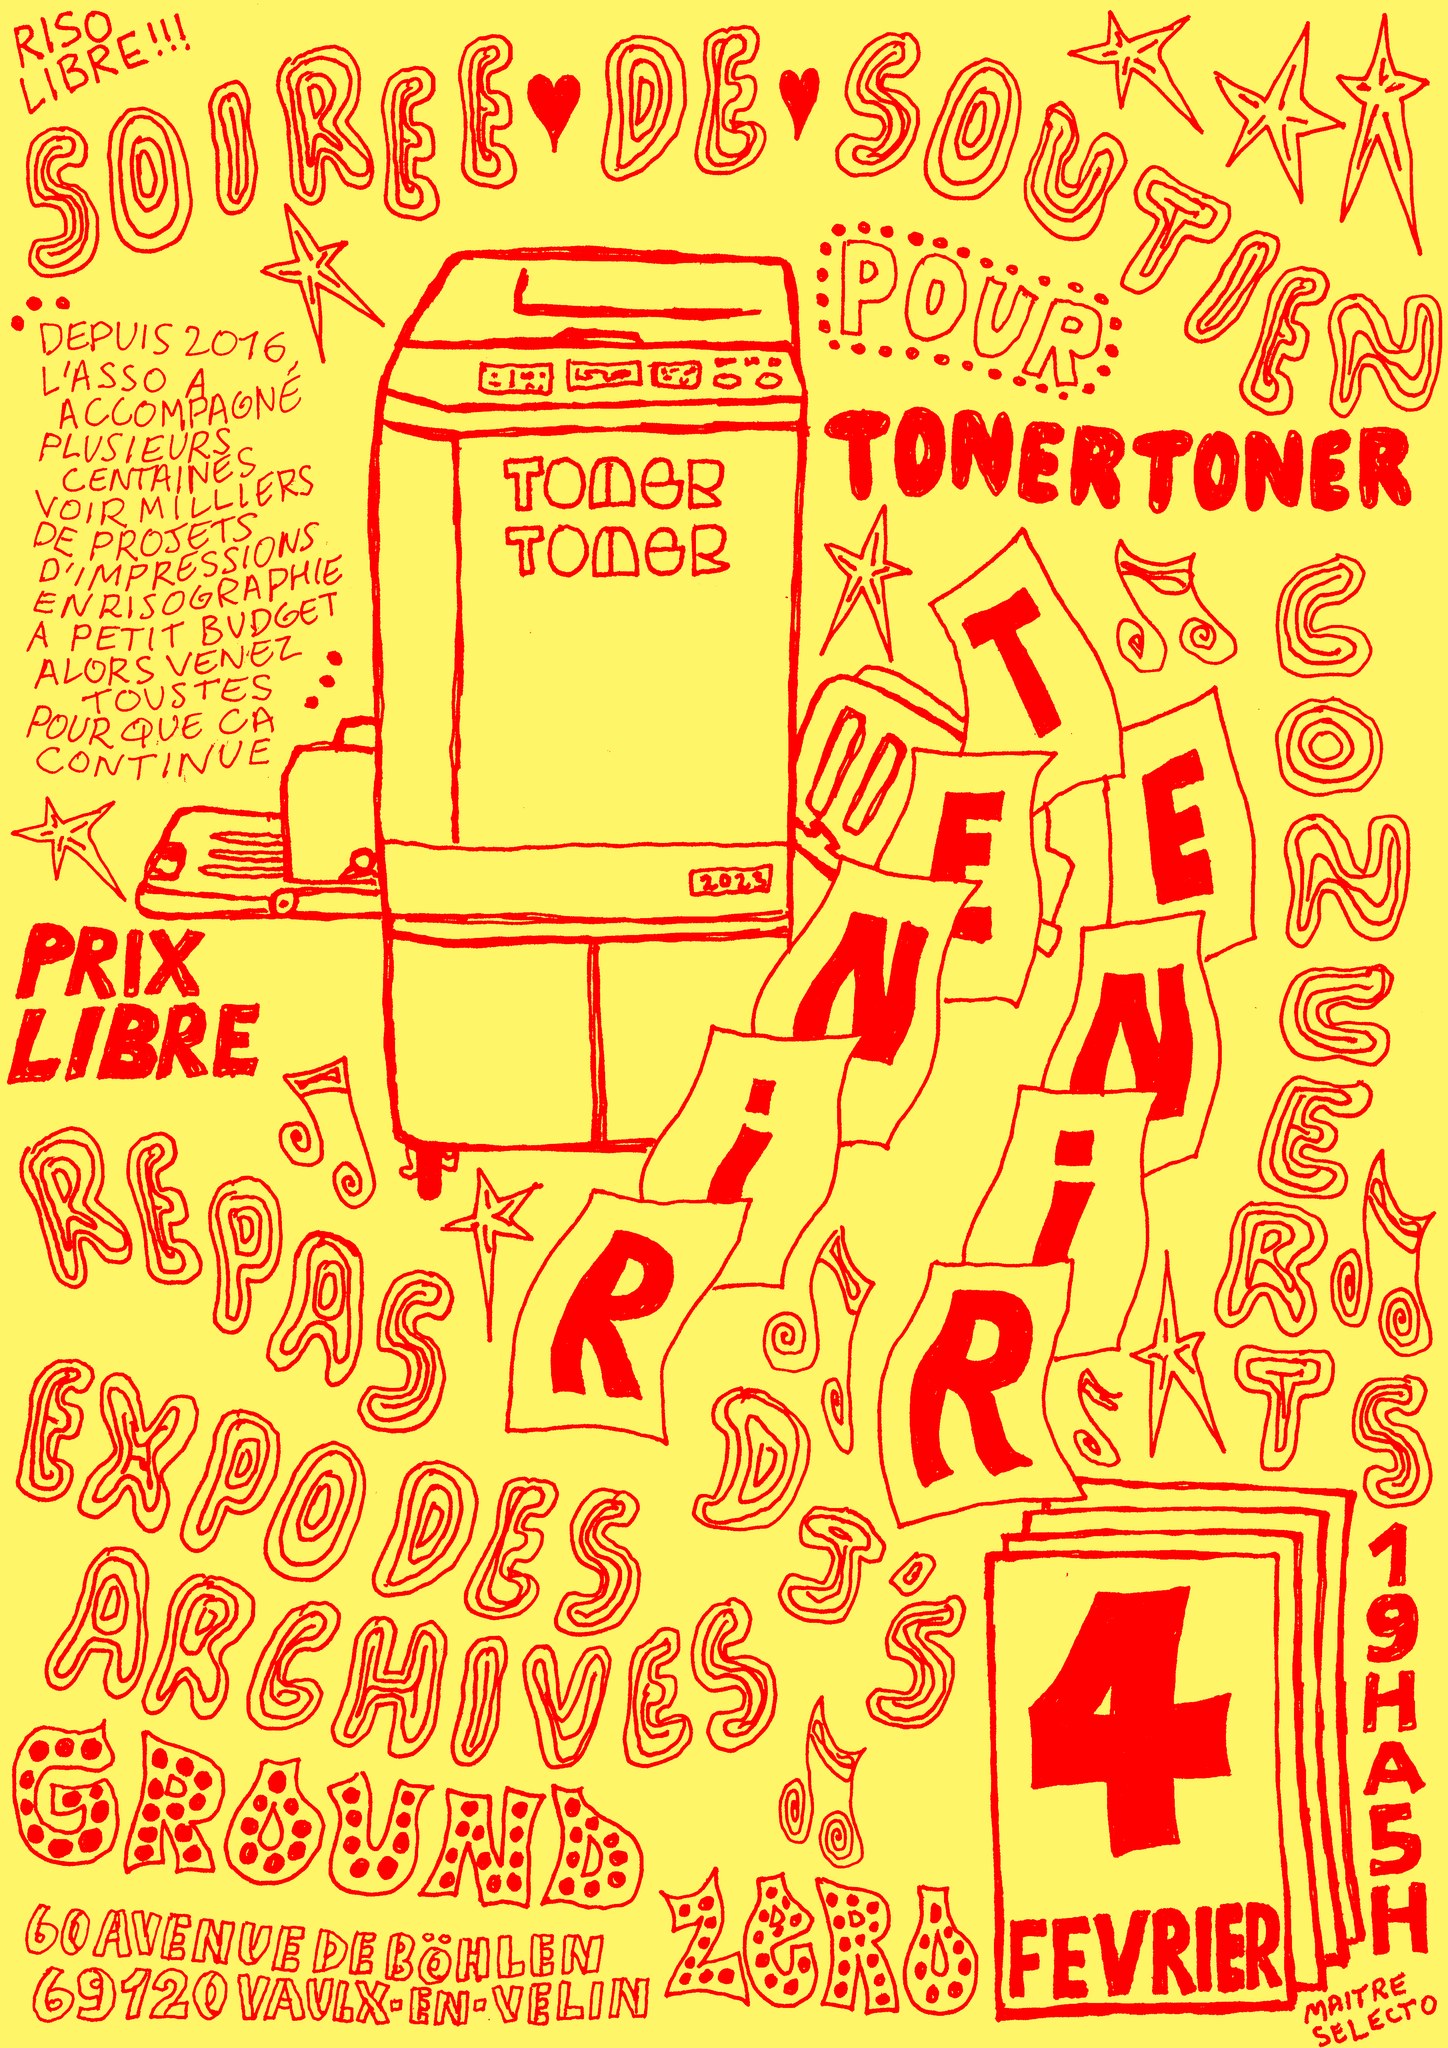 RISO
LIBRE!!!
SOIREE DE SOUTIEN
POUR
TONERTONER
DEPUIS 2016
L'ASSO A
ACCOMPAGNÉ
PLUSIEURS
CENTAINES
VOIR MILLIERS
DE PROJETS
D'IMPRESSIONS
EN RISOGRAPHIE
A PETIT BUDGET
ALORS VENEZ
TOUSTES
POUR QUE CA
CONTINUE
TONER
TONER
2023
TENIR
TENIR
CONCERTS
PRIX
LIBRE
REPAS
EXPO DES
ARCHIVES
DJ'S
GROUND
ZERO
60 AVENUE DE BÖHLEN
69120 VAULX-EN-VELIN
4
FEVRIER
19HA5H
MAITRE
SELECTO